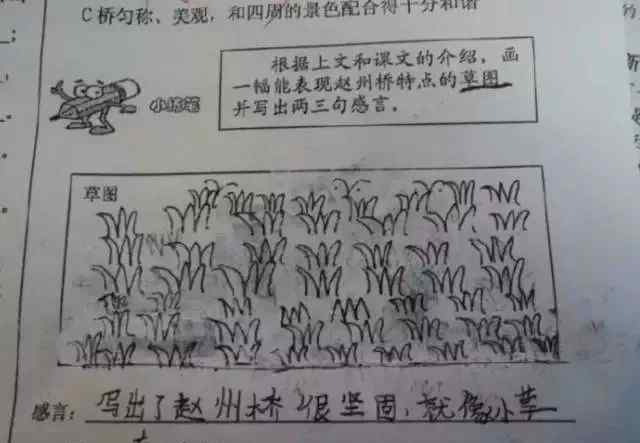 C 桥匀称、美观，和四周的景色配合得十分和谐
根据上文和课文的介绍，画
一幅能表现赵州桥特点的草图
并写出两三句感言。
草图
感言：写出了赵州桥很坚固，就像小草